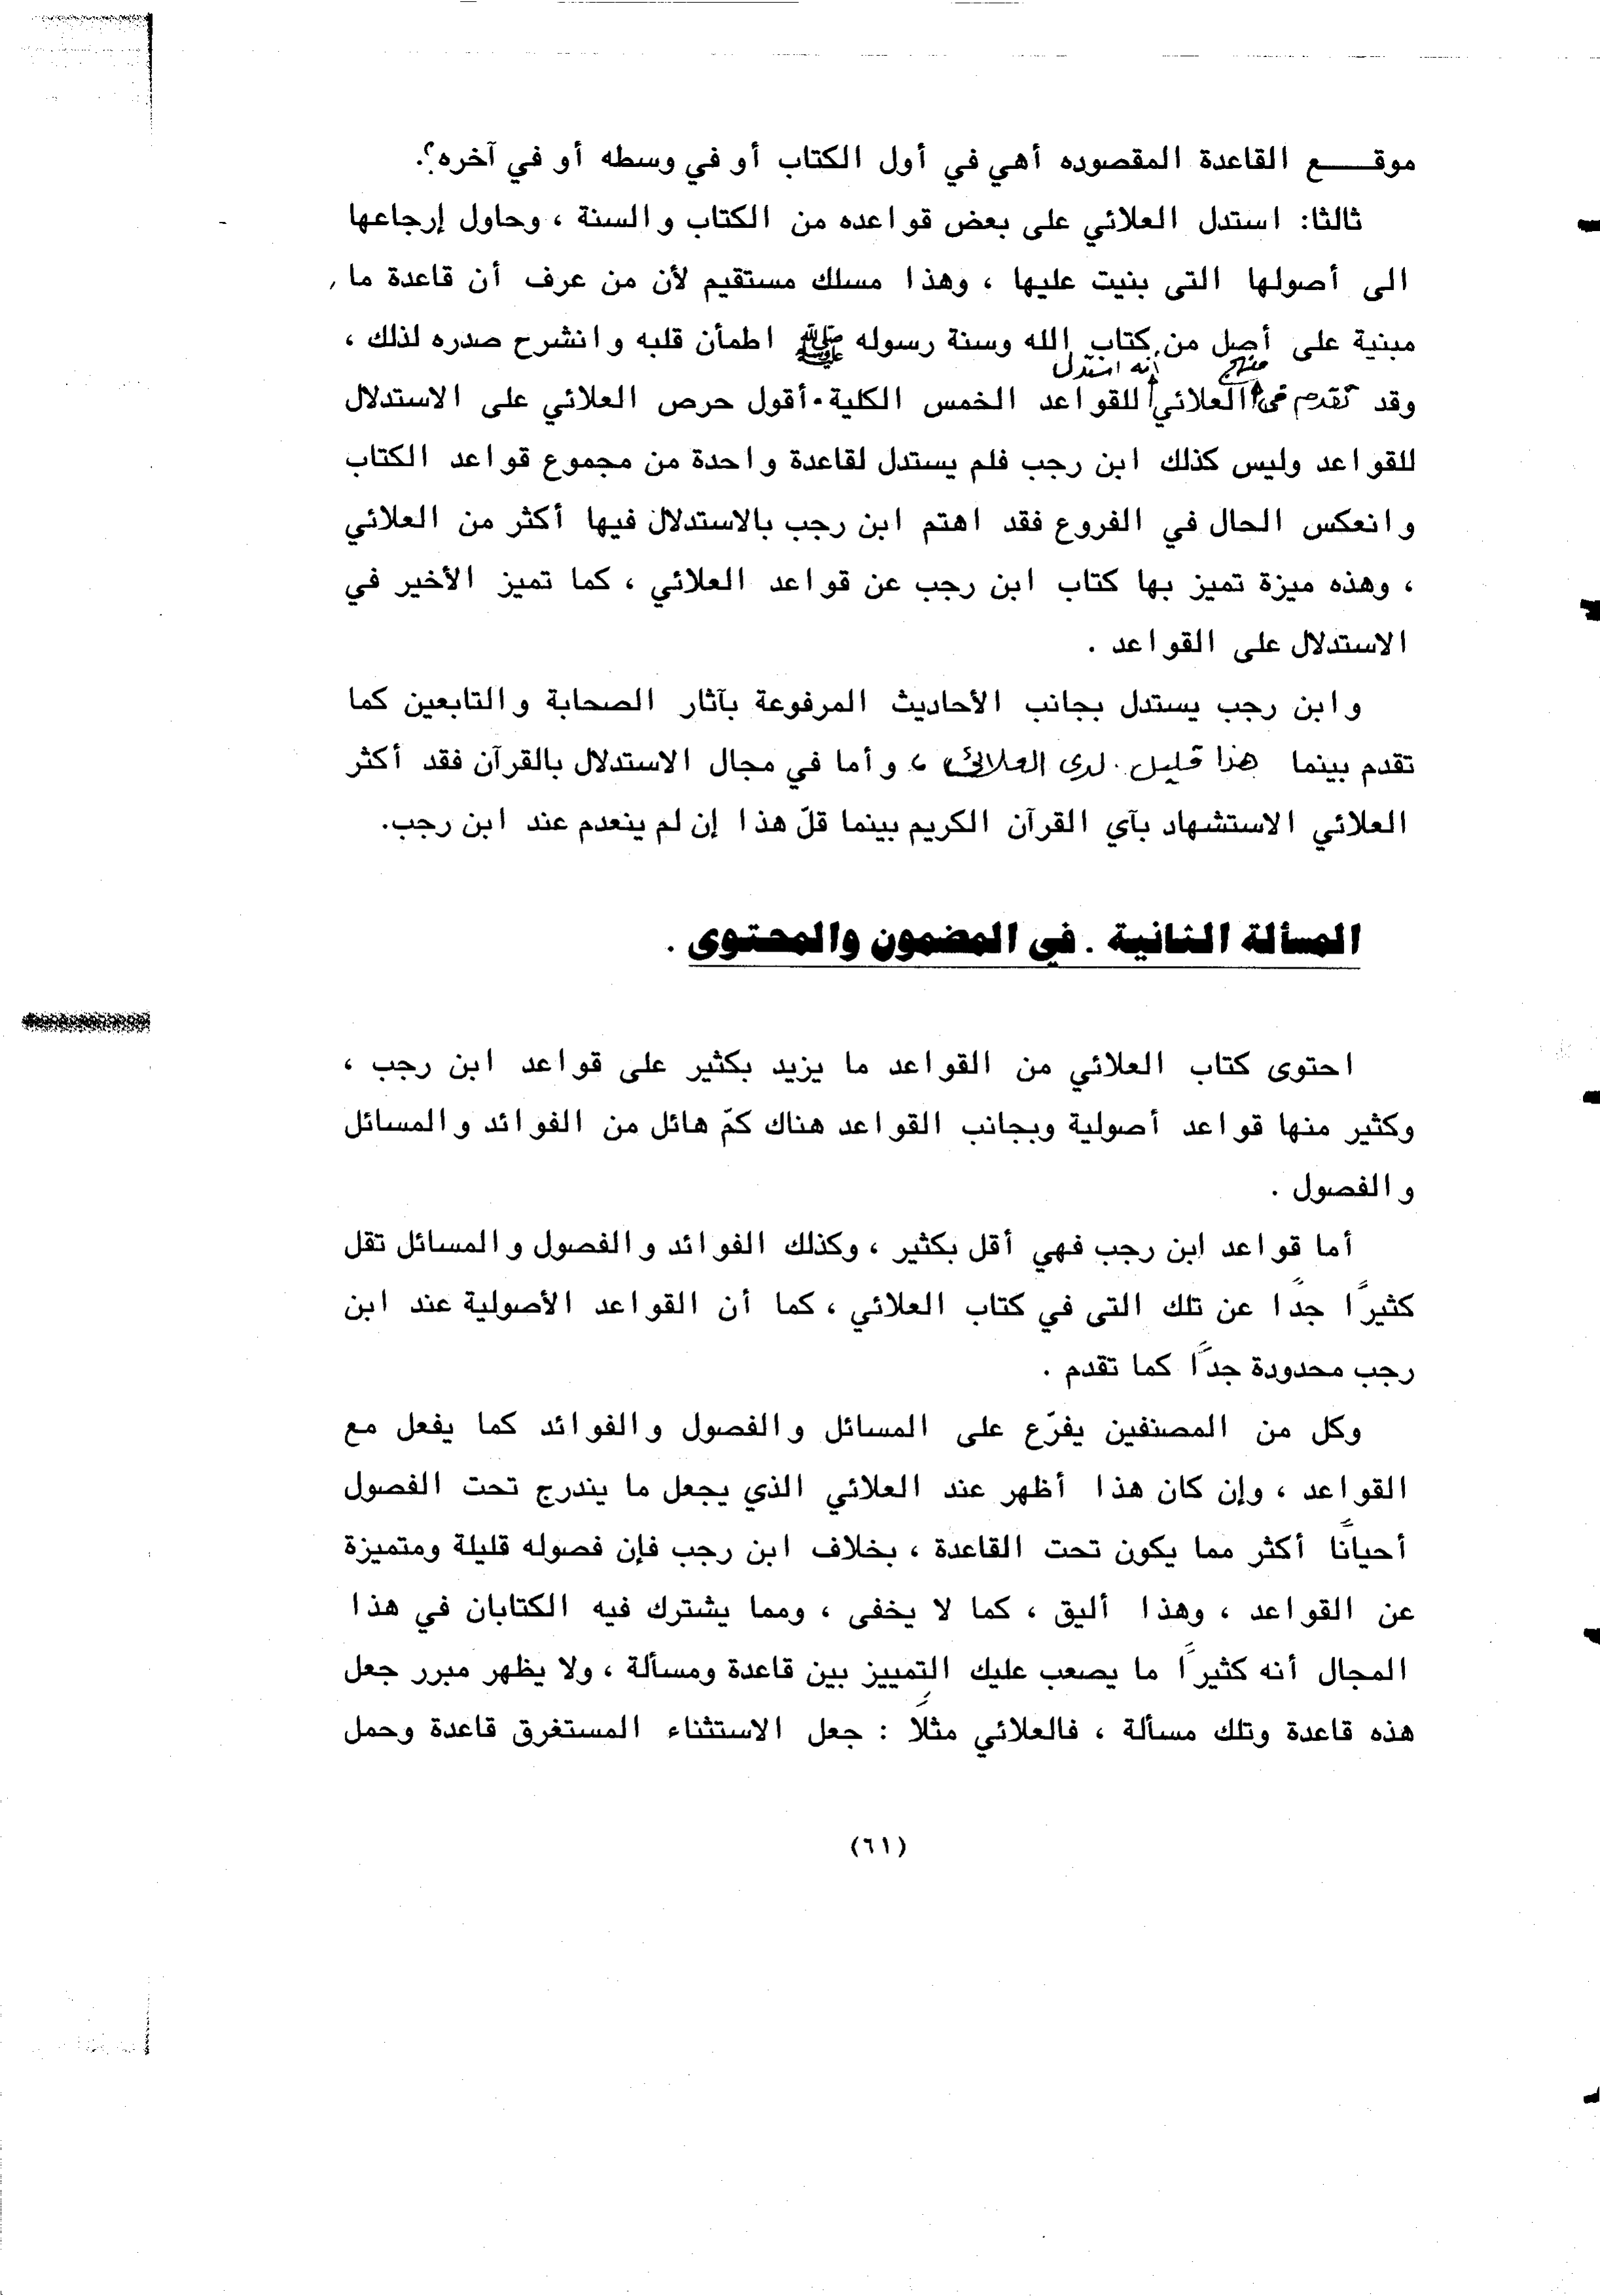 موقـــــع القاعدة المقصوده أهي في أول الكتاب أو في وسطه أو في آخره؟.
ثالثا: استدل العلائي على بعض قواعده من الكتاب والسنة ، وحاول إرجاعها
الى أصولها التى بنيت عليها ، وهذا مسلك مستقيم لأن من عرف أن قاعدة ما
مبنية على أصل من كتاب الله وسنة رسوله ﷺ اطمأن قلبه وانشرح صدره لذلك ،
وقد تقدم في منهاج العلائي أنه استدل للقواعد الخمس الكلية . أقول حرص العلائي على الاستدلال
للقواعد وليس كذلك ابن رجب فلم يستدل لقاعدة واحدة من مجموع قواعد الكتاب
وانعكس الحال في الفروع فقد اهتم ابن رجب بالاستدلال فيها أكثر من العلائي
، وهذه ميزة تميز بها كتاب ابن رجب عن قواعد العلائي ، كما تميز الأخير في
الاستدلال على القواعد .
وابن رجب يستدل بجانب الأحاديث المرفوعة بآثار الصحابة والتابعين كما
تقدم بينما هذا قليل لدى العلائي ، وأما في مجال الاستدلال بالقرآن فقد أكثر
العلائي الاستشهاد بآي القرآن الكريم بينما قلّ هذا إن لم ينعدم عند ابن رجب.
المسألة الثانية . في المضمون والمحتوى .
احتوى كتاب العلائي من القواعد ما يزيد بكثير على قواعد ابن رجب ،
وكثير منها قواعد أصولية وبجانب القواعد هناك كمّ هائل من الفوائد والمسائل
والفصول .
أما قواعد ابن رجب فهي أقل بكثير ، وكذلك الفوائد والفصول والمسائل تقل
كثيرًا جدًا عن تلك التى في كتاب العلائي ، كما أن القواعد الأصولية عند ابن
رجب محدودة جدًا كما تقدم .
وكل من المصنفين يفرّع على المسائل والفصول والفوائد كما يفعل مع
القواعد ، وإن كان هذا أظهر عند العلائي الذي يجعل ما يندرج تحت الفصول
أحيانًا أكثر مما يكون تحت القاعدة ، بخلاف ابن رجب فإن فصوله قليلة ومتميزة
عن القواعد ، وهذا أليق ، كما لا يخفى ، ومما يشترك فيه الكتابان في هذا
المجال أنه كثيرًا ما يصعب عليك التمييز بين قاعدة ومسألة ، ولا يظهر مبرر جعل
هذه قاعدة وتلك مسألة ، فالعلائي مثلًا : جعل الاستثناء المستغرق قاعدة وحمل
(٦١)